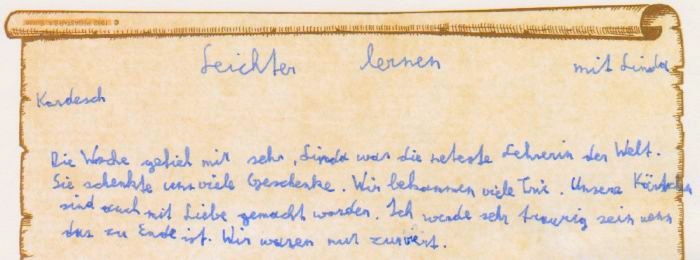 Leichter lernen mit Linda
Kardesch
Die Woche gefiel mir sehr, Linda war die netteste Lehrerin der Welt.
Sie schenkte uns viele Geschenke. Wir bekammen viele. Unsere
sind auch mit Liebe gemacht worden. Ich werde sehr traurig sein wenn
das zu Ende ist. Wir waren nur zu viert.